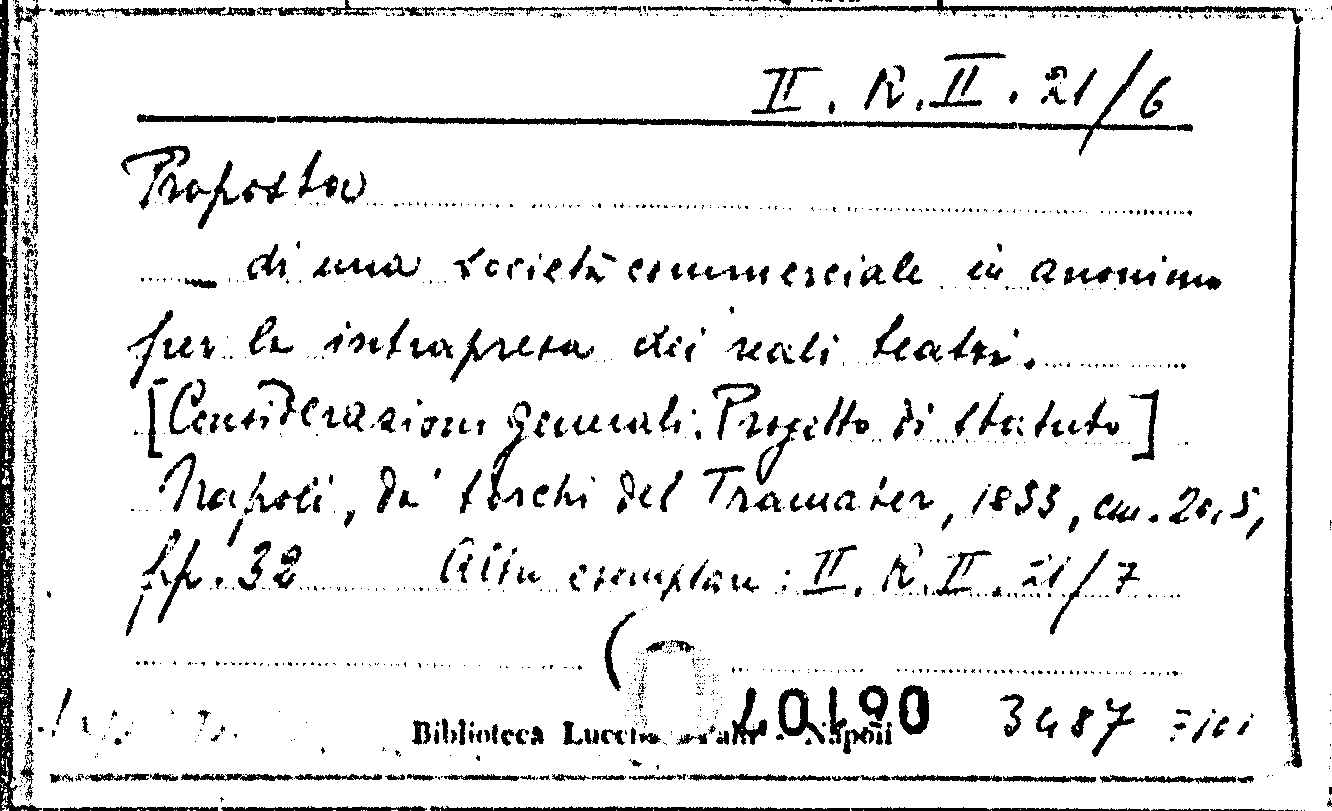 II. R. II. 21/6
Proposta
di una società commerciale in anonimo
per la intrapresa dei reali teatri.
[Considerazioni generali. Progetto di statuto]
Napoli, da' torchi del Tramater, 1833, cm. 20,5,
pp. 32 Altri esemplari: II. R. II. 21/7
Biblioteca Napoli
3487